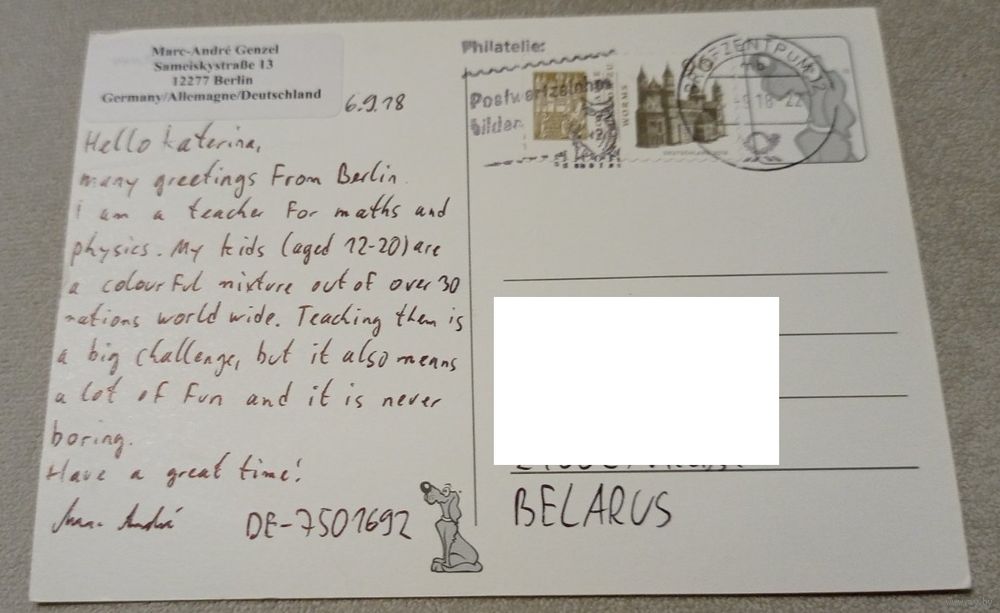 Marc-André Genzel
Sameiskystraße 13
12277 Berlin
Germany/Allemagne/Deutschland
6.9.18
Hello Katerina,
many greetings From Berlin.
I am a teacher For maths and
physics. My kids (aged 12-20) are
a colourful mixture out of over 30
nations world wide. Teaching them is
a big challenge, but it also means
a lot of Fun and it is never
boring.
Have a great time!
Marc-André
DE-7501692
Philatelie:
Postwertzeichen
bilder
WORMS
DEUTSCHLAND
BRIEFZENTRUM 12
BELARUS